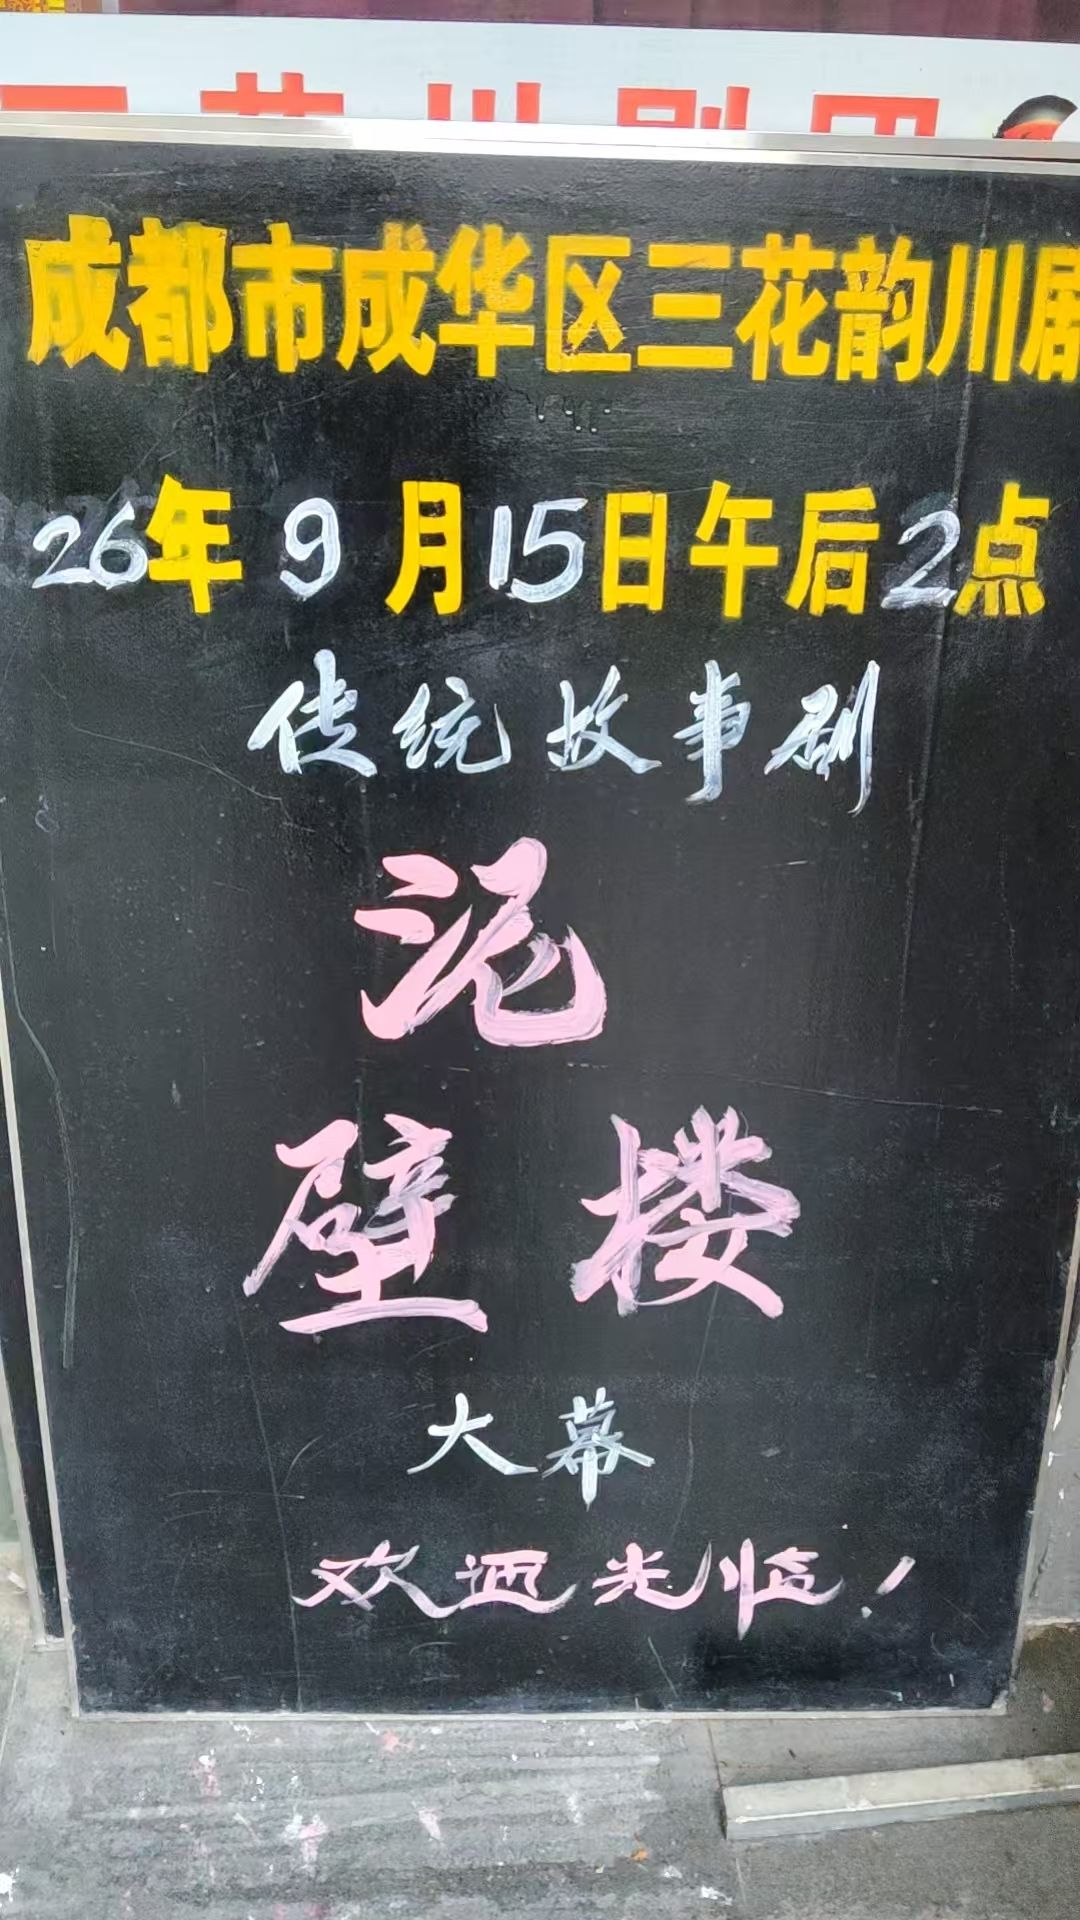 成都市成华区三花韵川剧
26年9月15日午后2点
传统故事剧
泥
壁楼
大幕
欢迎光临！